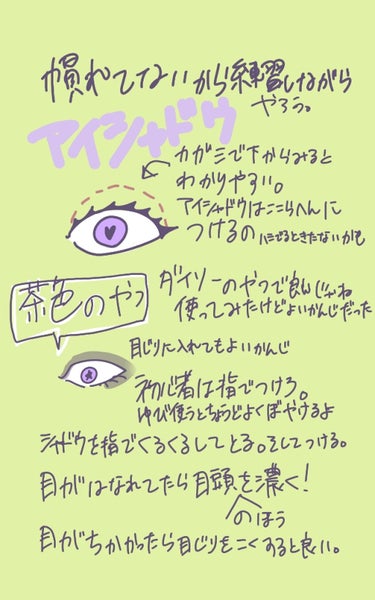 慣れてないから練習しながら
やろう。
アイシャドウ
カガミで下からみると
わかりやすい。
アイシャドウはここらへんに
つけるの ハミでるときたないかも
茶色のやつ
ダイソーのやつで良んじゃね
使ってみたけどよいかんじだった
目じりに入れてもよいかんじ
初心者は指でつけろ。
ゆび使うとちょうどよくぼやけるよ
シャドウを指でくるくるしてとる。そしてつける。
目がはなれてたら目頭を濃く!
のほう
目がちかかったら目じりをこくすると良い。